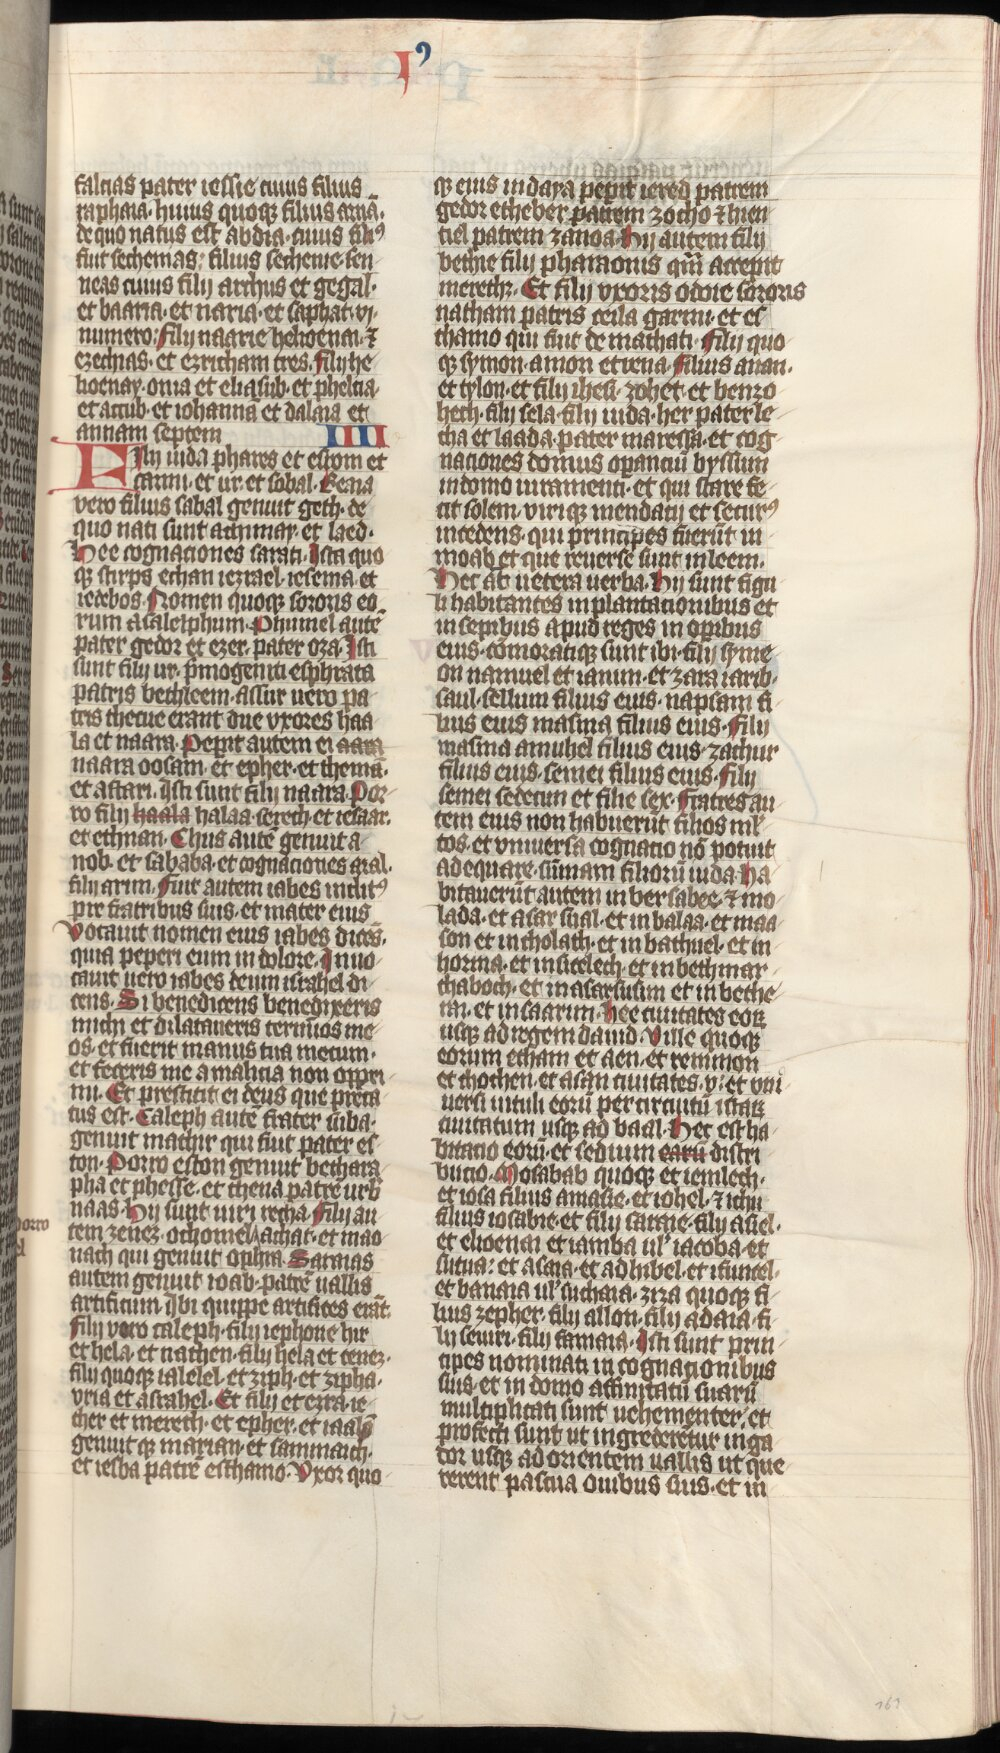 I⁹
falcias pater iessie cuius filius
raphaia· huius quoqꝫ filius arnā·
de quo natus est abdia· cuius fili⁹
fuit sechemas: filius sechenie· sem
neas cuius filij archus et gegal·
et baaria· et naria· et saphat· vi·
numero: filij naarie helioenai· ⁊
ezechias· et ezricham tres· filij he
lioenay· oma et eliasub· et pheleia·
et accub· et iohanna et dalaia et
annam septem IIII
Filij iuda phares et esrom et
carmi· et ur· et sobal· Reaia
vero filius sabal genuit geth· de
quo nati sunt achimay· et laed·
Hee cognationes sarati· Ista quo
qꝫ stirps ethan iezrael· iesema· et
iedebos· Nomen quoqꝫ sororis eo
rum asalelphum· Phunuel autē
pater gedor et ezer· pater oza· Isti
sunt filij ur· p̄mogeniti esphrata
patris bethleem· assur uero pa
tris thecue erant due vxores haa
la et naara· Peperit autem ei aara
naara oosam· et epher· et themā·
et astari· Isti sunt filij naara· Por
ro filij haala halaa· sereth· et iesaar·
et ethnan· Chus autē genuit a
nob· et sababa· et cognaciones aral·
filij arim· fuit autem iabes inclit⁹
pre fratribus suis· et mater eius
vocauit nomen eius iabes dicēs·
quia peperi eum in dolore· Inuo
cauit uero iabes deum israhel di
cens· Si benedicens benedixeris
michi et dilataueris termīos me
os· et fuerit manus tua mecum·
et feceris me a malicia non oppri
mi· Et prestitit ei deus que preca
tus est· Caleph autē frater suba·
genuit machir qui fuit pater es
ton· Porro eston genuit bethara
pha et phesse· et thena patrē urb̄
naas· Hij sunt uiri recha· filij au
tem zenez· othoniel achat· et mao
nath qui genuit ophra· Saraias
autem genuit ioab· patrē uallis
artificum· Ibi quippe artifices erāt·
filij vero caleph· filij iephone hir
et hela· et nathen· filij hela et cenez·
filij quoqꝫ ialelel· et ziph· et zipha·
vria et asrahel· Et filij et ezra· ie
ther et mereth· et epher· et iaalō
genuit qꝫ marian· et sammaich·
et iesba patrē esthamo· Vxor quo
qꝫ eius iudaya peperit iered patrem
gedor et heber patrem zocho ⁊ hien
tiel patrem zanoa· Hij autem filij
bethie filij pharaonis qm̄ accepit
mereth· Et filij vxoris odoie sororis
natham patris ceila garmi· et es
thamo qui fuit de machati· filij quo
qꝫ symon· amon et rena· filius anan·
et tylon· et filij ihesi· zohet· et benzo
heth· filij sela· filij iuda· her pater le
cha et laada· pater maressa· et cog
naciones domus operanciū byssum
in domo iuramenti· et qui stare fe
cit solem· viriqꝫ mendacij et secur⁹
incedens· qui principes fuerūt in
moab et que reuerse sunt in leem·
Hec āt uetera uerba· Hij sunt figu
li habitantes in plantacionibus et
in sepibus apud reges in operibus
eius· cōmoratiqꝫ sunt ibi· filij syme
on namuel et iamin· et zara iarib·
saul· sellum filius eius· napsam fi
lius eius masma filius eius· filij
masma amuhel filius eius· zachur
filius eius· semei filius eius· filij
semei sedecim et filie sex· fratres au
tem eius non habuerūt filios ml̄
tos· et vniuersa cognatio nō potuit
adequare· summam filiorū iuda· Ha
bitauerūt autem in bersabee· ⁊ mo
lada· et asar sual· et in balaa· et maa
son et in cholath· et in bathuel· et in
horma· et in sicelech· et in bethmar
chaboth· et in asarsusim et in bethe
rai· et in saarim· Hee ciuitates eoꝝ
usqꝫ ad regem dauid· Ville quoqꝫ
eorum etham et aen· et remmon
et thochen· et asan ciuitates· v: et vni
uersi uiculi eorū per circuitū istaꝝ
ciuitatum usqꝫ ad baal· Hec est ha
bitacio eorū· et sedium earū distri
bucio· Mosabab quoqꝫ et iemlech·
et iosa filius amasie· et iohel· ⁊ iehu
filius iosabie· et filij saraye· filij asiel·
et elioenai et iamba ul' iacoba· et
sutua: et asaia· et adhibel· et ismael·
et banaia ul' suchaia· ziza quoqꝫ fi
lius zepher· filij allon· filij adaia· fi
lij semri· filij samaia· Isti sunt prin
cipes nominati in cognacionibus
suis· et in domo affinitatū suarū
multiplicati sunt uehementer: et
profecti sunt ut ingrederētur in ga
dor usqꝫ ad orientem uallis ut que
rerent pascua ouibus suis· et in
161